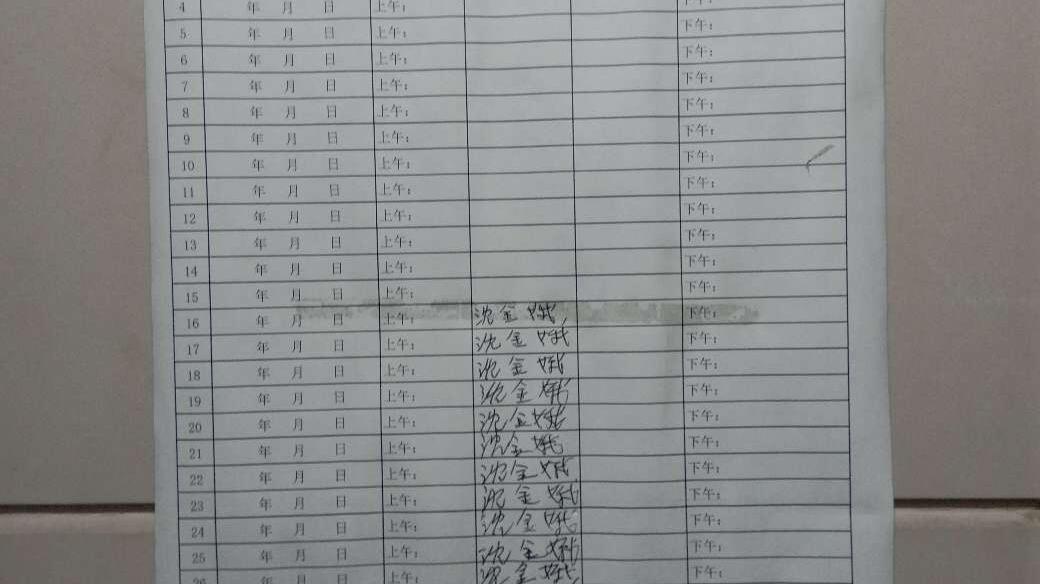 4 年 月 日 上午： 下午：
5 年 月 日 上午： 下午：
6 年 月 日 上午： 下午：
7 年 月 日 上午： 下午：
8 年 月 日 上午： 下午：
9 年 月 日 上午： 下午：
10 年 月 日 上午： 下午：
11 年 月 日 上午： 下午：
12 年 月 日 上午： 下午：
13 年 月 日 上午： 下午：
14 年 月 日 上午： 下午：
15 年 月 日 上午： 下午：
16 年 月 日 上午： 沈金娥 下午：
17 年 月 日 上午： 沈金娥 下午：
18 年 月 日 上午： 沈金娥 下午：
19 年 月 日 上午： 沈金娥 下午：
20 年 月 日 上午： 沈金娥 下午：
21 年 月 日 上午： 沈金娥 下午：
22 年 月 日 上午： 沈金娥 下午：
23 年 月 日 上午： 沈金娥 下午：
24 年 月 日 上午： 沈金娥 下午：
25 年 月 日 上午： 沈金娥 下午：
26 年 月 日 上午： 沈金娥 下午：